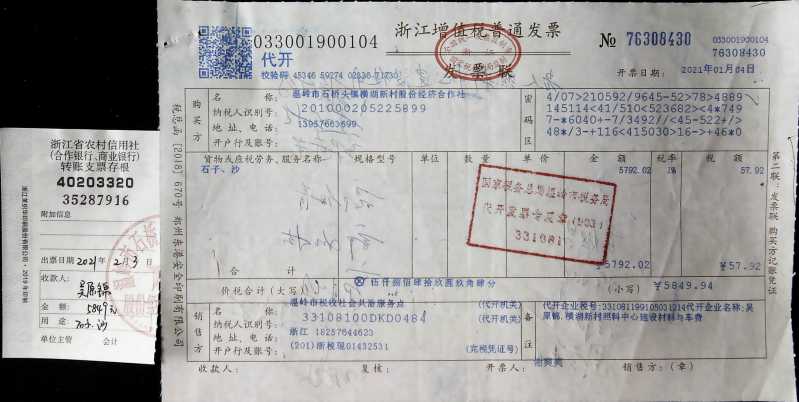 浙江省农村信用社
(合作银行、商业银行)
转账支票存根
40203320
35287916
附加信息
出票日期 2021年 2月3日
收款人:
金额: 5849元
用途
单位主管 会计
033001900104
浙江增值税普通发票
№ 76308430
033001900104
76308430
代开
校验码 45346 59274 02836 71730
发票联
开票日期: 2021年01月04日
购买方
名称: 温岭市石桥头镇横湖新村股份经济合作社
纳税人识别号: 201000205225899
地址、电话: 13957663699
开户行及账号:
密码区
4/07>210592/9645-52>78>4889
145114<41/510<523682><4*749
7-*6040+-7/3492//<45-522+/>
48*/3-+116<415030>16->+46*0
货物或应税劳务、服务名称 规格型号 单位 数量 单价 金额 税率 税额
石子、沙 5792.02 1% 57.92
国家税务总局温岭市税务局
代开发票专用章
331081
合计 ¥5792.02 ¥57.92
价税合计(大写) 伍仟捌佰肆拾玖圆玖角肆分 (小写) ¥5849.94
销售方
名称: 温岭市税收社会共治服务点 (代开机关)
纳税人识别号: 33108100DKD0484 (代开机关)
地址、电话: 浙江 18257644623
开户行及账号: (201)浙税现01432531 (完税凭证号)
备注
代开企业税号:331081199105031214代开企业名称:吴
原锦,横湖新村照料中心建设材料与车费
收款人: 复核: 开票人: 谢奕奕 销售方:(章)
税总函〔2018〕670号 郑州东港安全印刷有限公司
第二联:发票联 购买方记账凭证